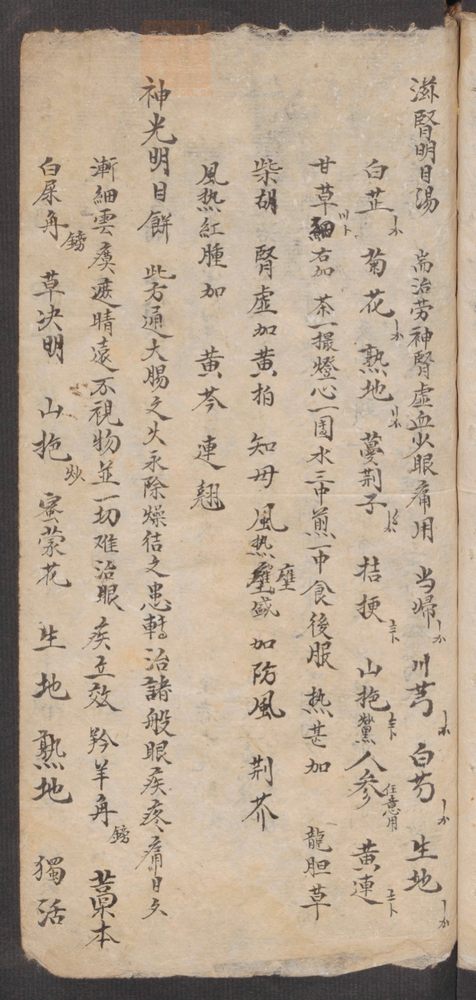 滋腎明目湯 耑治劳神腎虚血少眼痛用 当歸 川芎 白芍 生地
白芷 菊花 熟地 蔓荆子 桔梗 山梔 人参任意用 黄連
甘草 右加 茶一撮燈心一囤水三中煎一中食後服 熱甚加 龍胆草
柴胡 腎虚加黄柏 知毋 風熱壅盛 加防風 荆芥
風热紅腫加 黄芩 連翹
神光明目餅 此方通大腸之火永除燥结之患轉治諸般眼疾疼痛日久
漸細雲瘼遮睛遠不視物並一切难治眼疾立效 羚羊角鎊 藁本
白犀角鎊 草决明 山梔炒 蜜蒙花 生地 熟地 獨活